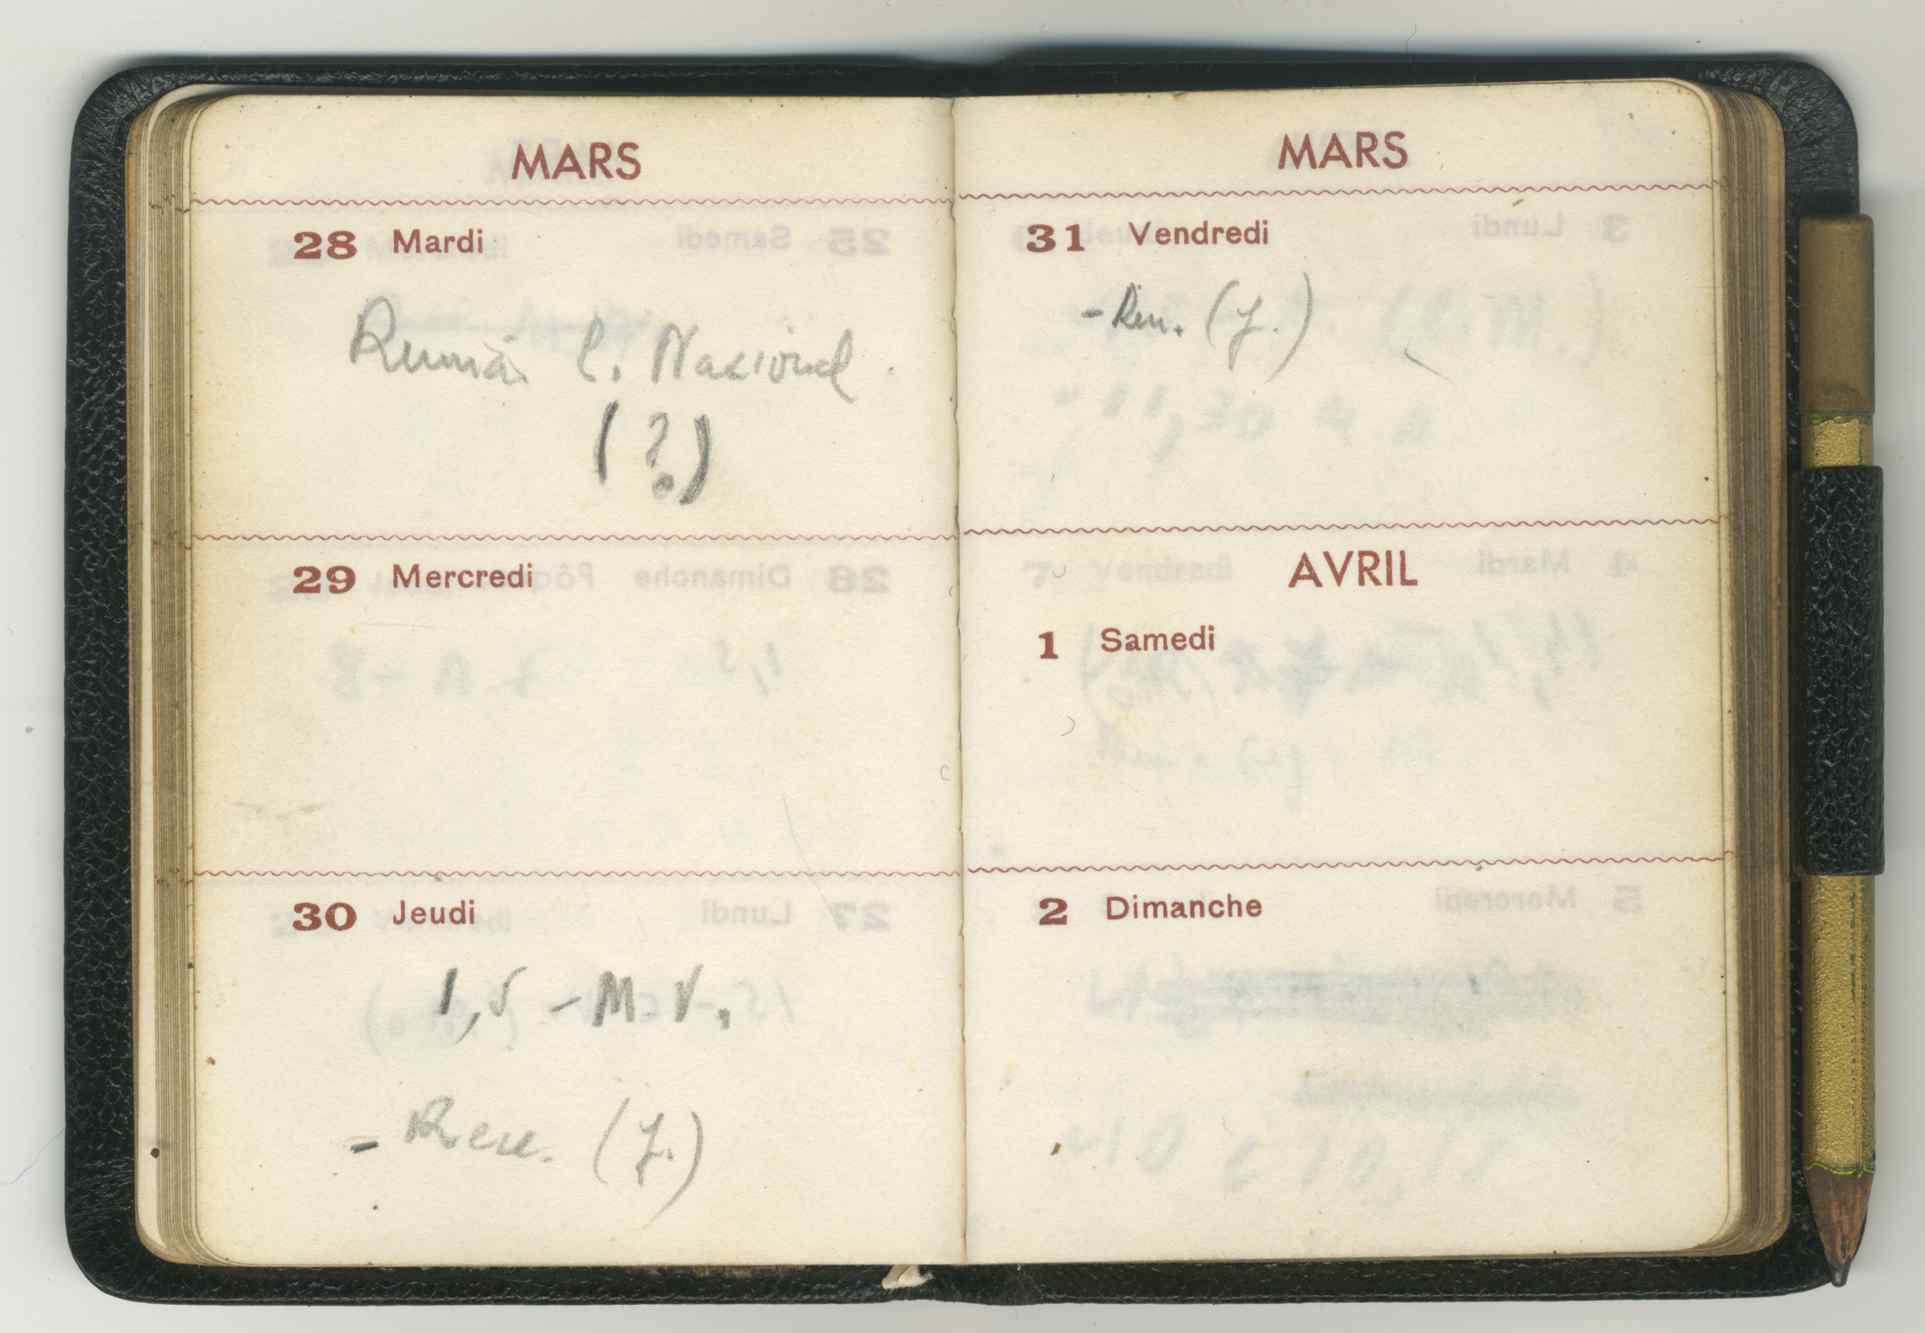 MARS
28 Mardi
C. Nacional
(?)
29 Mercredi
30 Jeudi
1,5 - M. V.
- (J.)
MARS
31 Vendredi
- Reu. (J.)
AVRIL
1 Samedi
2 Dimanche